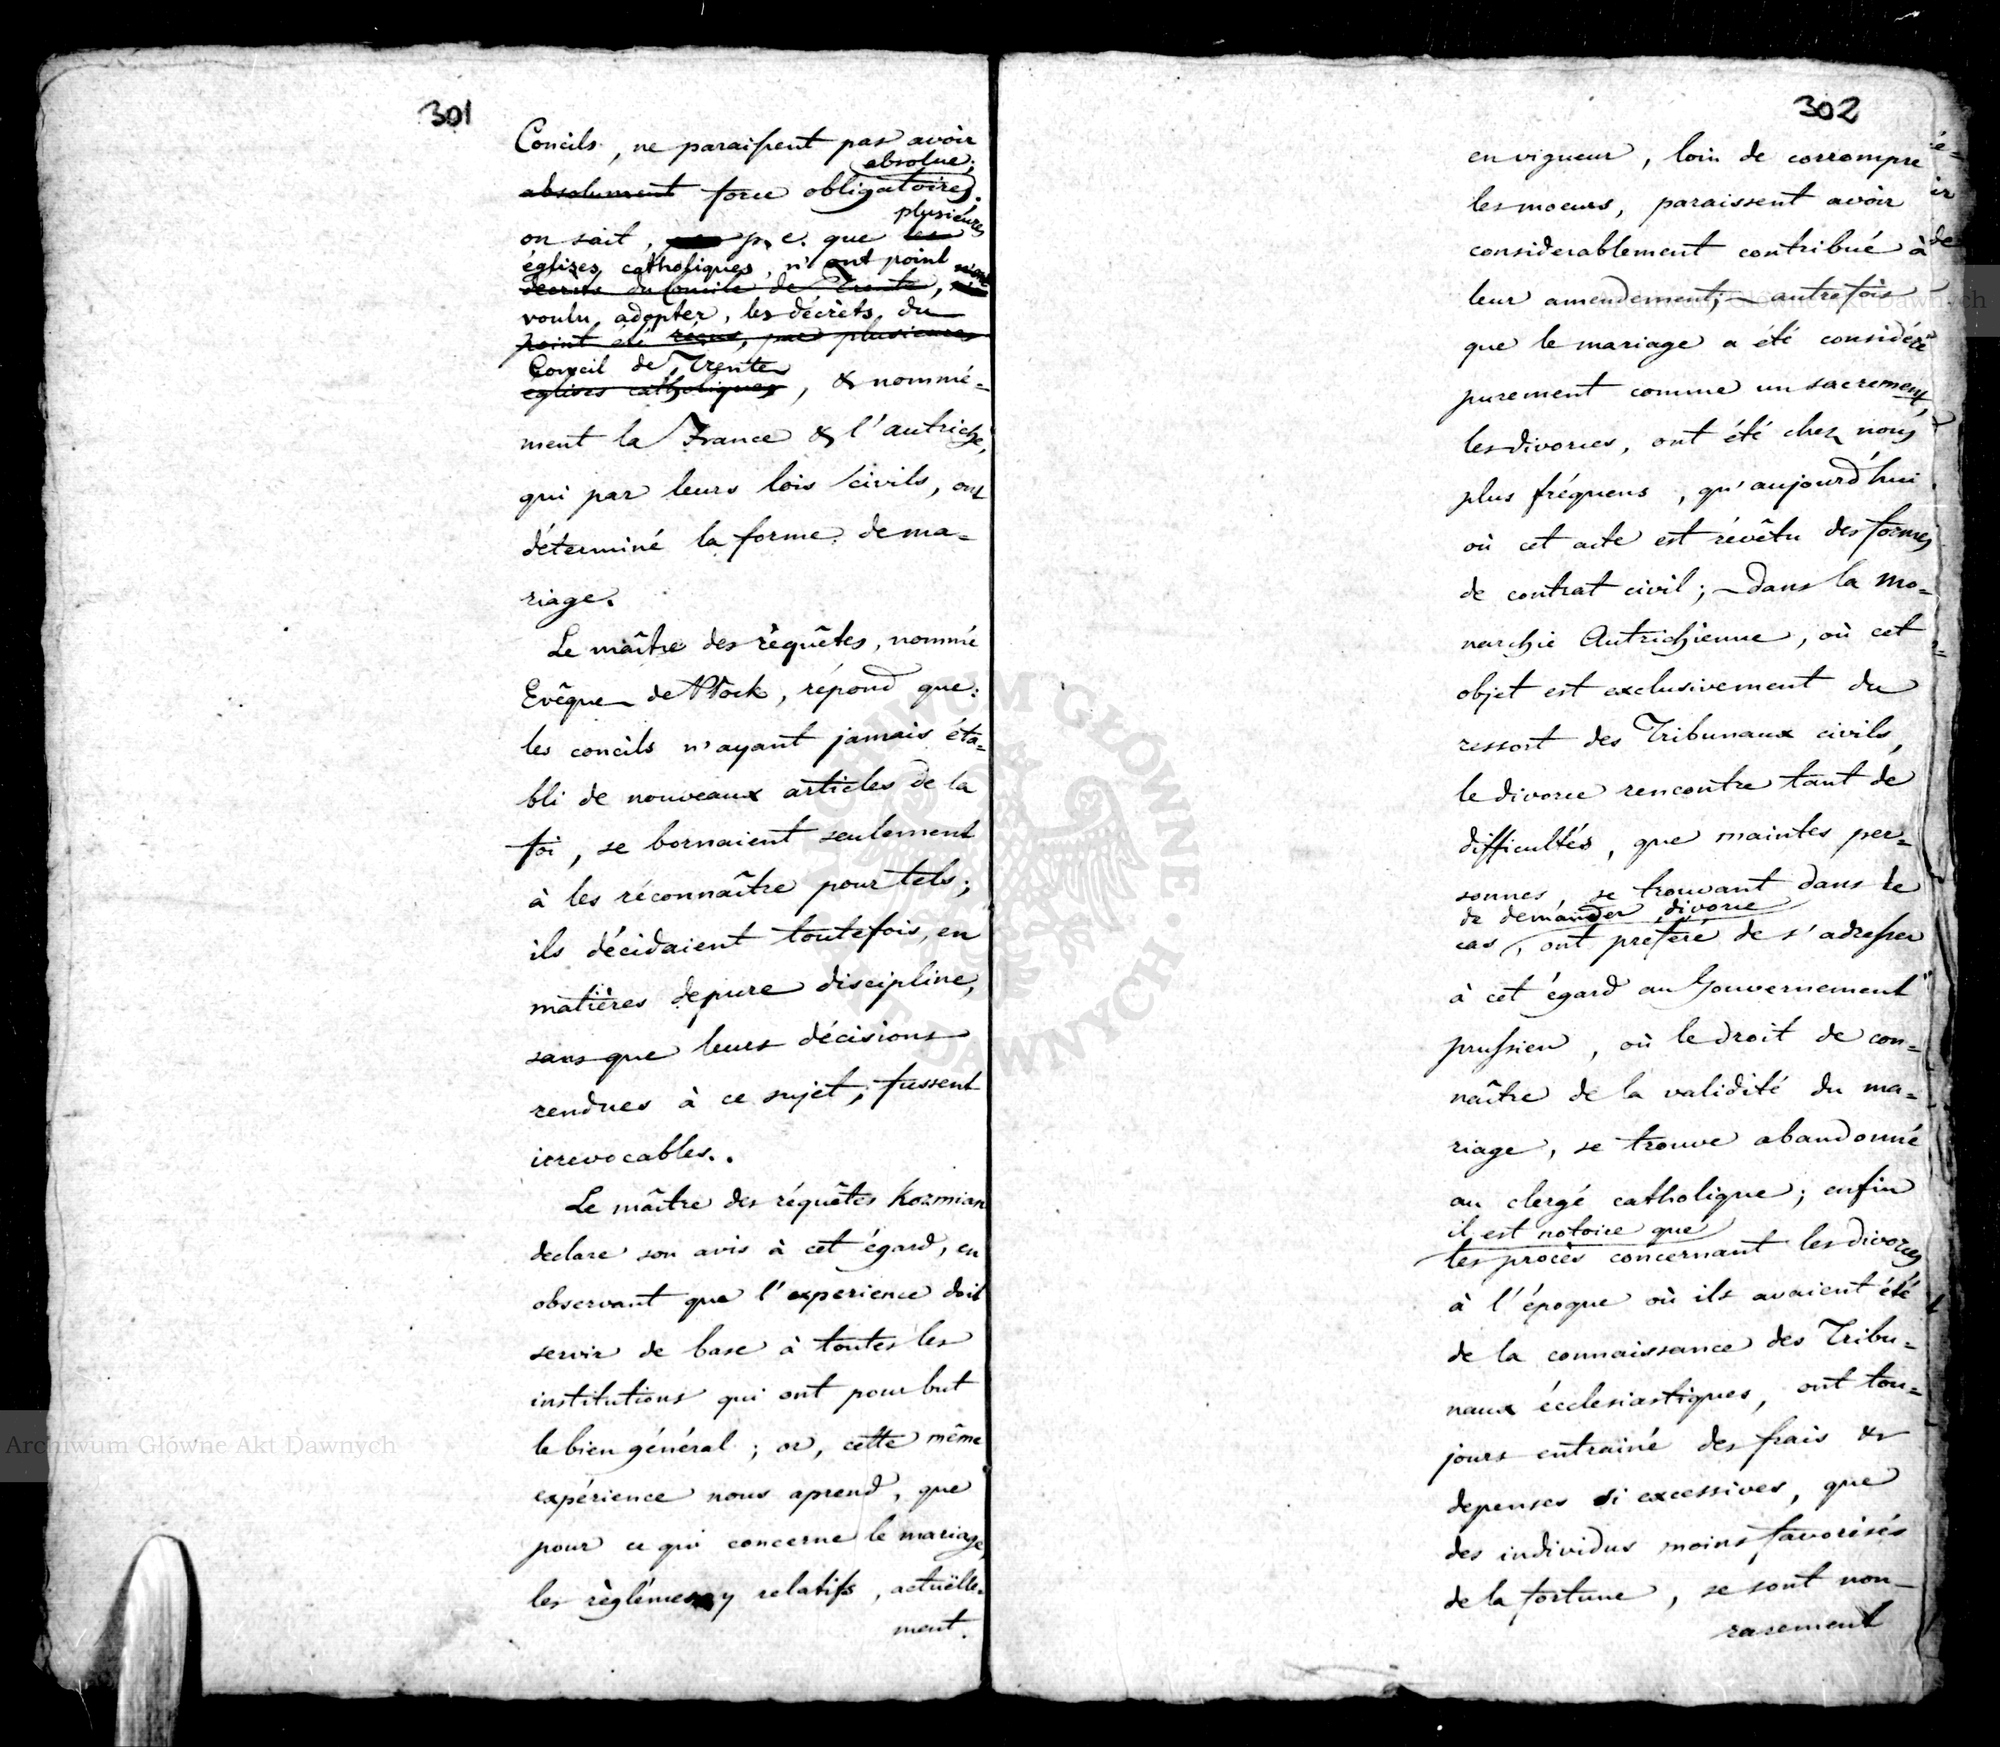 301
Concils, ne paraissent pas avoir
absolue;
absolument force obligatoire.
plusieures
on sait, p. e. que les
églises catholiques, n'ont point
decrets du Concile de Trente, n'ont
voulu adopter, les décrèts du
point été réçus, par plusieures
Conçeil de Trente
eglises catholiques, & nommé-
ment la France & l'autriche,
qui par leurs lois civils, ont
déterminé la forme de ma-
riage.
Le maître des réquêtes, nommé
Evêque de Płock, répond que:
les concils n'ayant jamais éta-
bli de nouveaux articles de la
foi, se bornaient seulement
à les réconnaître pour tels;
ils décidaient toutefois, en
matières de pure discipline,
sans que leurs décisions
rendues à ce sujet, fussent
irrevocables.
Le maître des réquêtes Kozmian
declare son avis à cet égard, en
observant que l'experience doit
servir de base à toutes les
institutions qui ont pour but
le bien général; or, cette même
expérience nous aprend, que
pour ce qui concerne le mariage,
les règlémes y relatifs, actuëlle-
ment.
302
en vigueur, loin de corrompre
les moeurs, paraissent avoir
considerablement contribué à
leur amendement; autrefois
que le mariage a été considéré
purement comme un sacrement,
les divorces, ont été chez nous
plus fréquens, qu'aujourd'hui
où cet acte est révêtu des formes
de contrat civil; dans la mo-
narchie Autrichienne, où cet
objet est exclusivement du
ressort des Tribunaux civils,
le divorce rencontre tant de
difficultés, que maintes per-
sonnes, se trouvant dans le
de demander divorce
cas, ont preferé de s'adresser
à cet égard au Gouvernement
prussien, où le droit de con-
naître de la validité du ma-
riage, se trouve abandonné
au clergé catholique; enfin
il est notoire que
les procès concernant les divorces
à l'époque où ils avaient été
de la connaissance des Tribu-
naux écclesiastiques, ont tou-
jours entrainé des frais &
depenses si excessives, que
des individus moins favorisés
de la fortune, se sont non-
rasement
Archiwum Główne Akt Dawnych
Archiwum Główne Akt Dawnych
ARCHIWUM GŁÓWNE AKT DAWNYCH